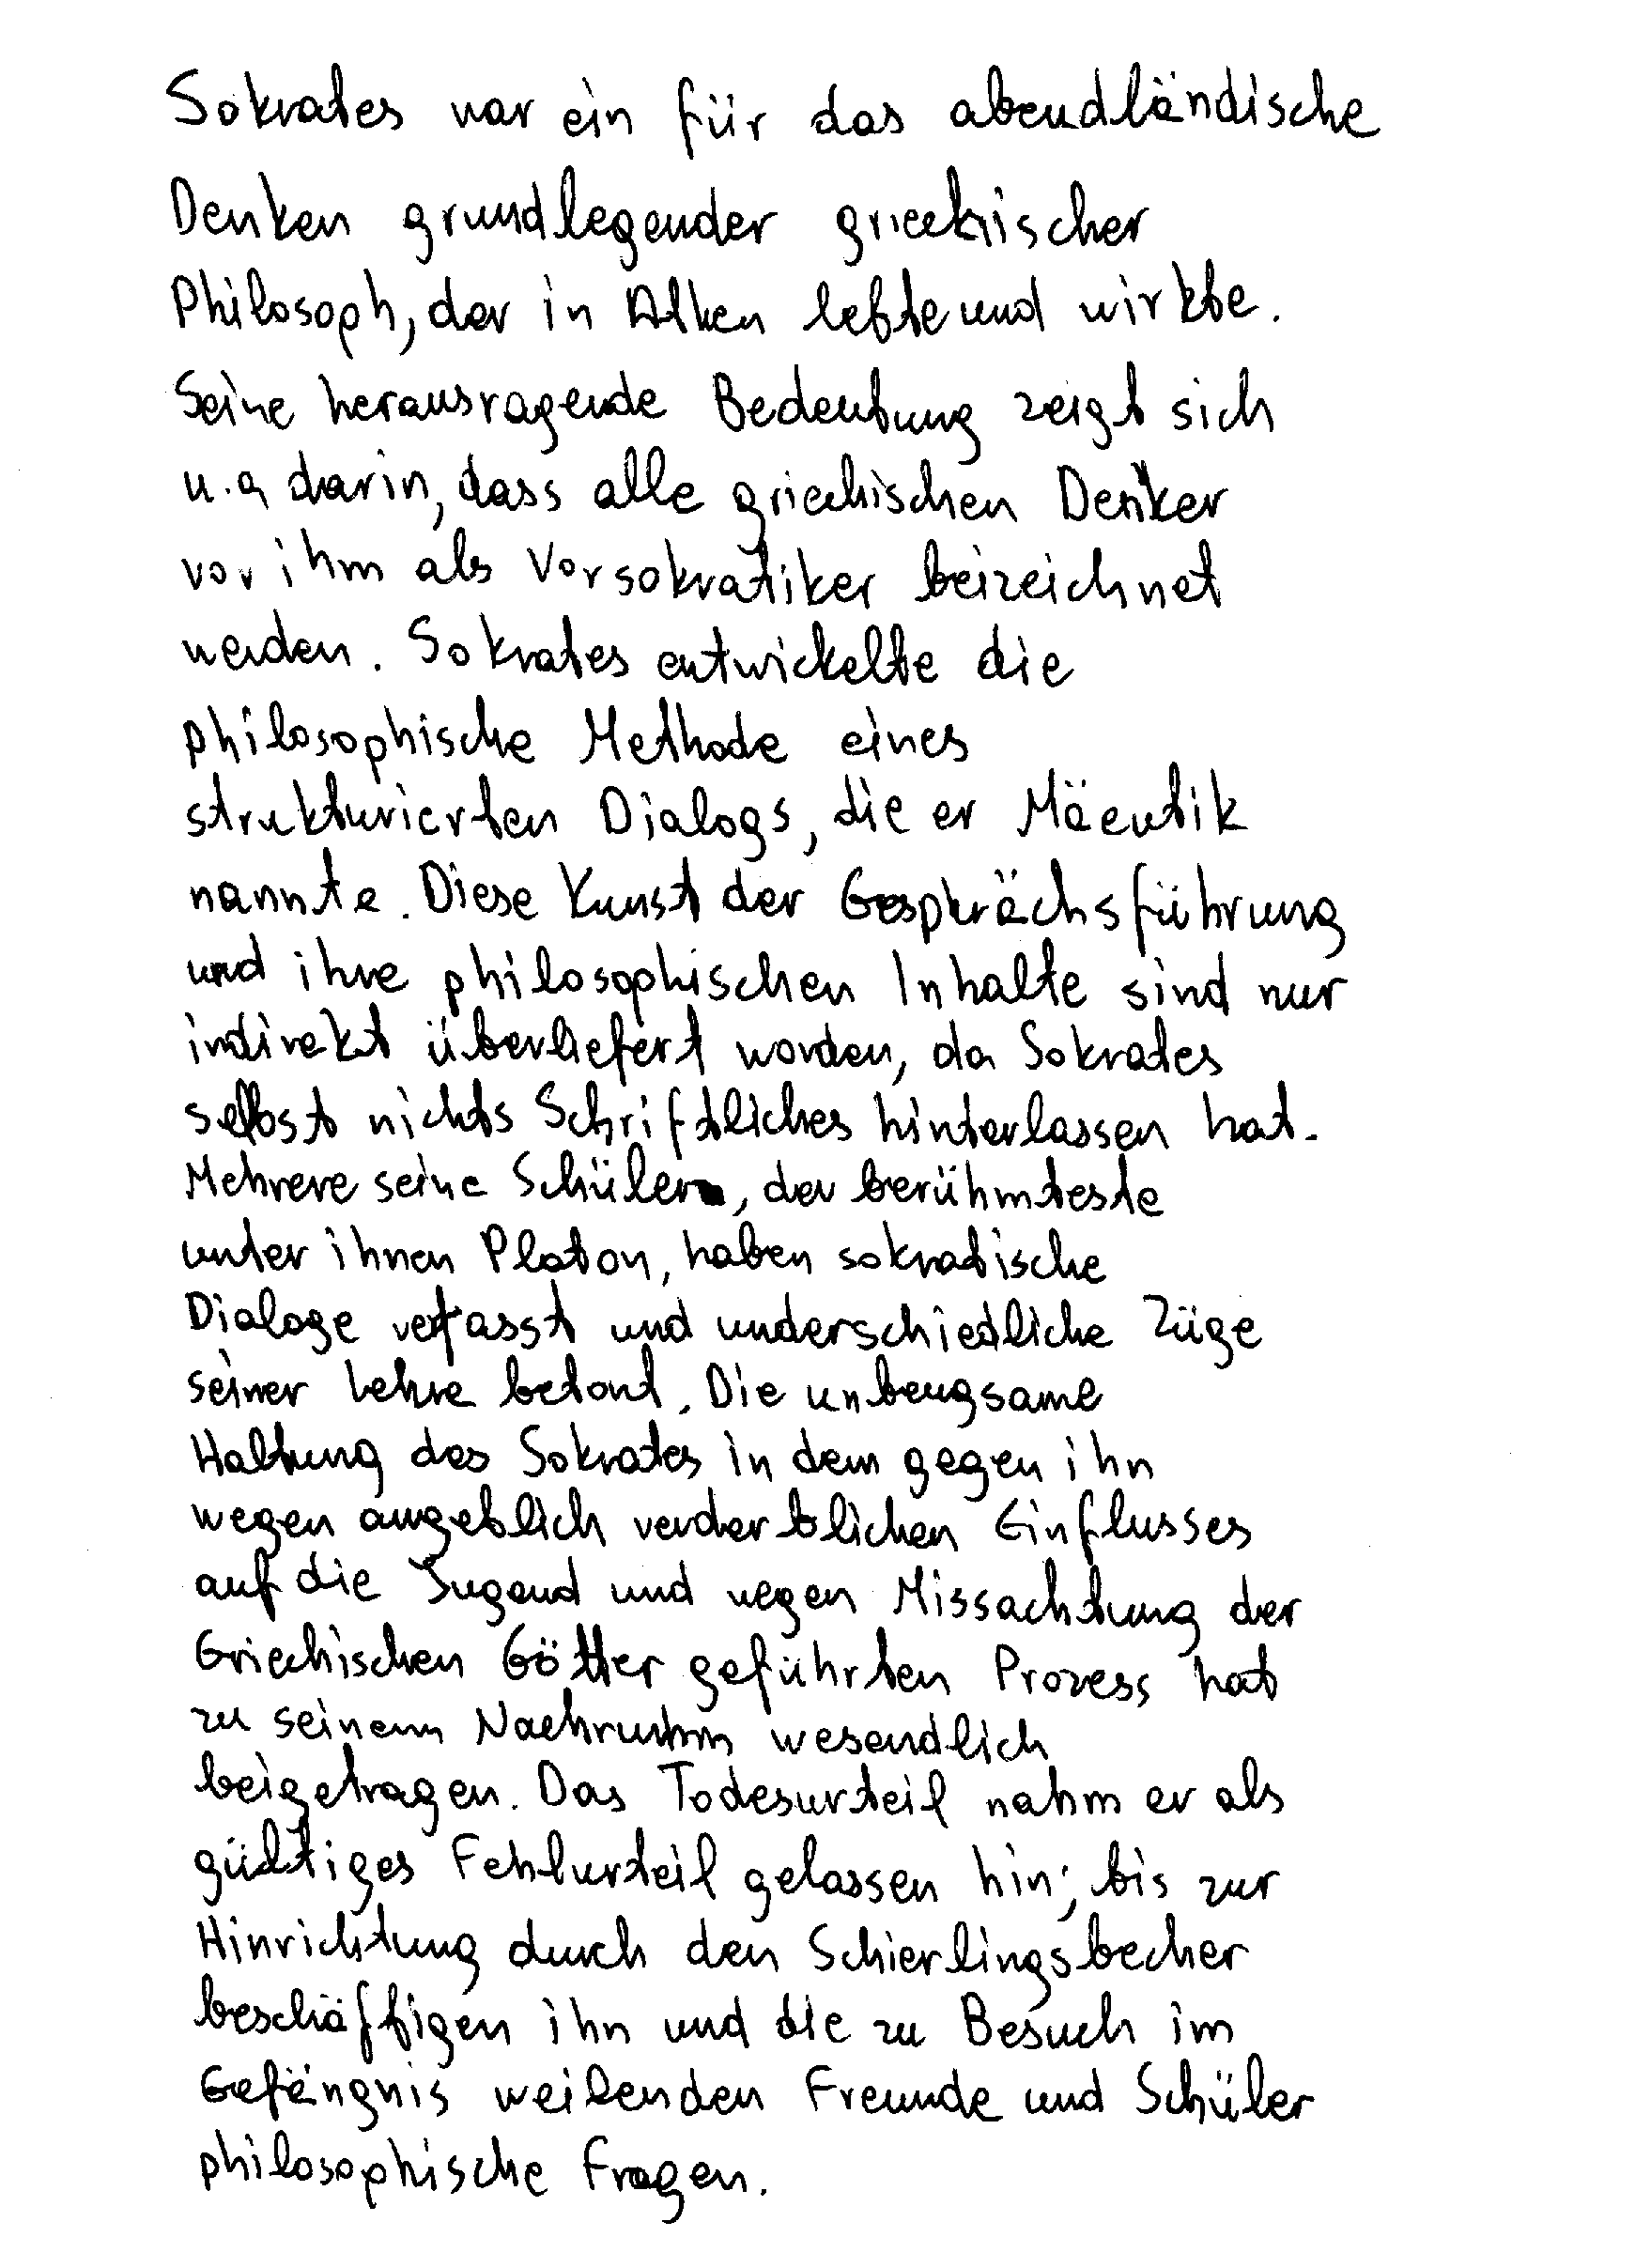 Sokrates war ein für das abendländische
Denken grundlegender griechischer
Philosoph, der in Athen lebte und wirkte.
Seine herausragende Bedeutung zeigt sich
u.a darin, dass alle griechischen Denker
vor ihm als Vorsokratiker beizeichnet
werden. Sokrates entwickelte die
philosophische Methode eines
strukturierten Dialogs, die er Mäeutik
nannte. Diese Kunst der Gesprächsführung
und ihre philosophischen Inhalte sind nur
indirekt überliefert worden, da Sokrates
selbst nichts Schriftliches hinterlassen hat.
Mehrere seine Schüler, der berühmteste
unter ihnen Platon, haben sokratische
Dialoge verfasst und underschiedliche Züge
seiner Lehre betont. Die unbeugsame
Haltung des Sokrates in dem gegen ihn
wegen angeblich verderblichen Einflusses
auf die Jugend und wegen Missachtung der
Griechischen Götter geführten Prozess hat
zu seinem Nachruhm wesendlich
beigetragen. Das Todesurteil nahm er als
gültiges Fehlurteil gelassen hin; bis zur
Hinrichtung durch den Schierlingsbecher
beschäftigen ihn und die zu Besuch im
Gefängnis weilenden Freunde und Schüler
philosophische Fragen.